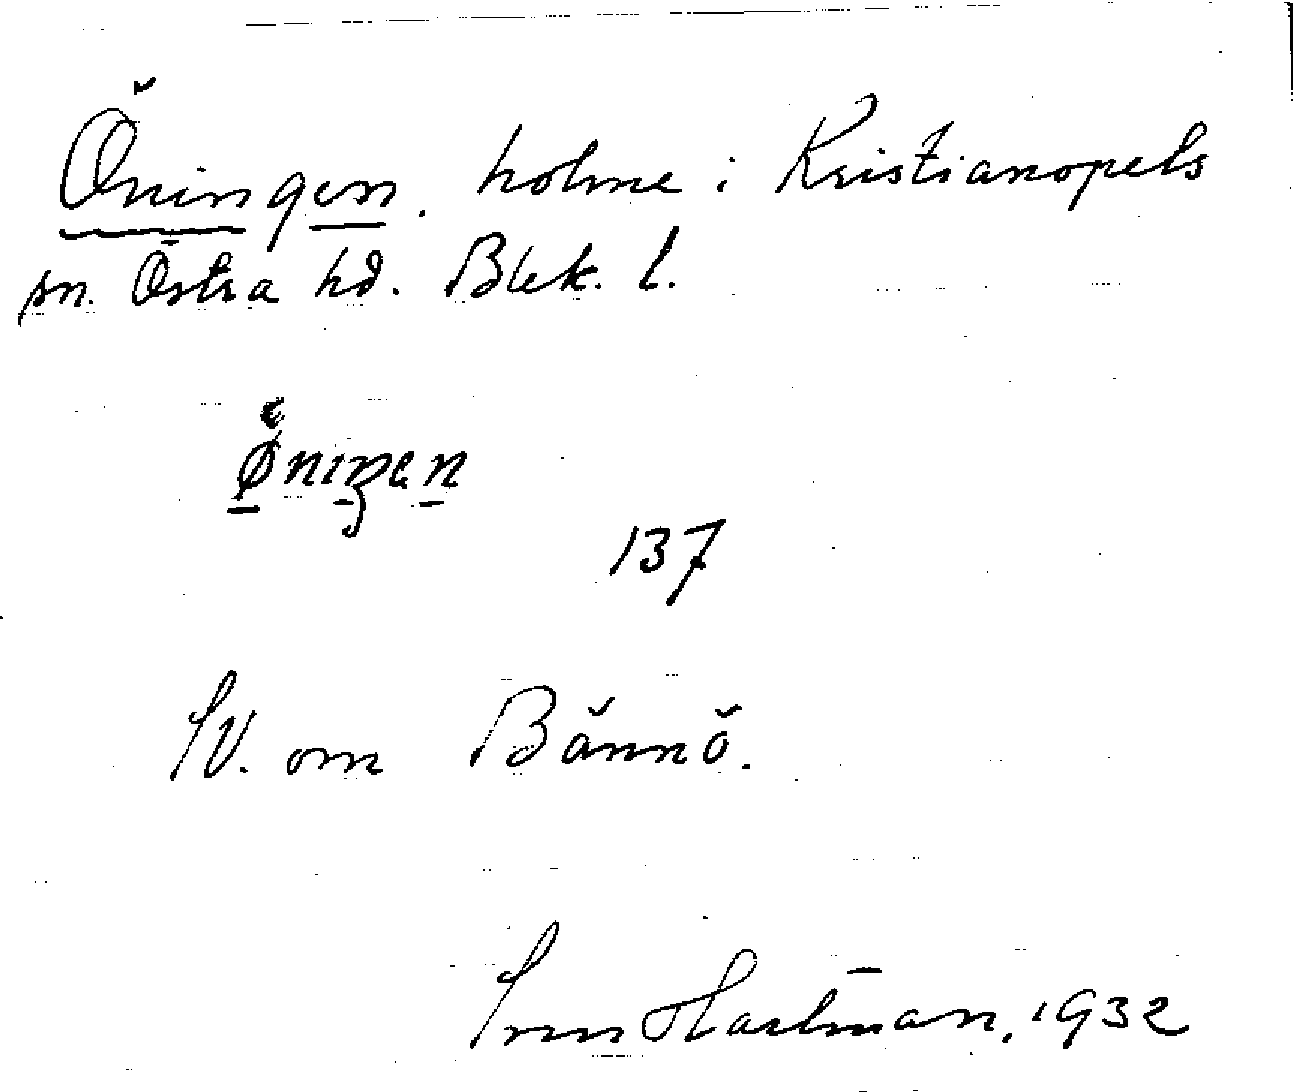 Öningen. holme i Kristianopels
sn. Östra hd. Blek. l.
137
SV. om Bännö.
Sven Hartman, 1932